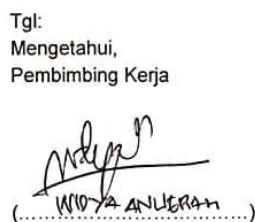 Tgl:
Mengetahui,
Pembimbing Kerja
(....WIDYA ANUGRAH....)